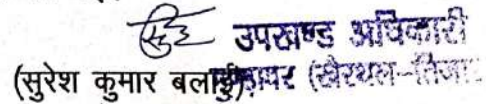 उपखण्ड अधिकारी
(सुरेश कुमार बलाई) (खैरथल-तिजा